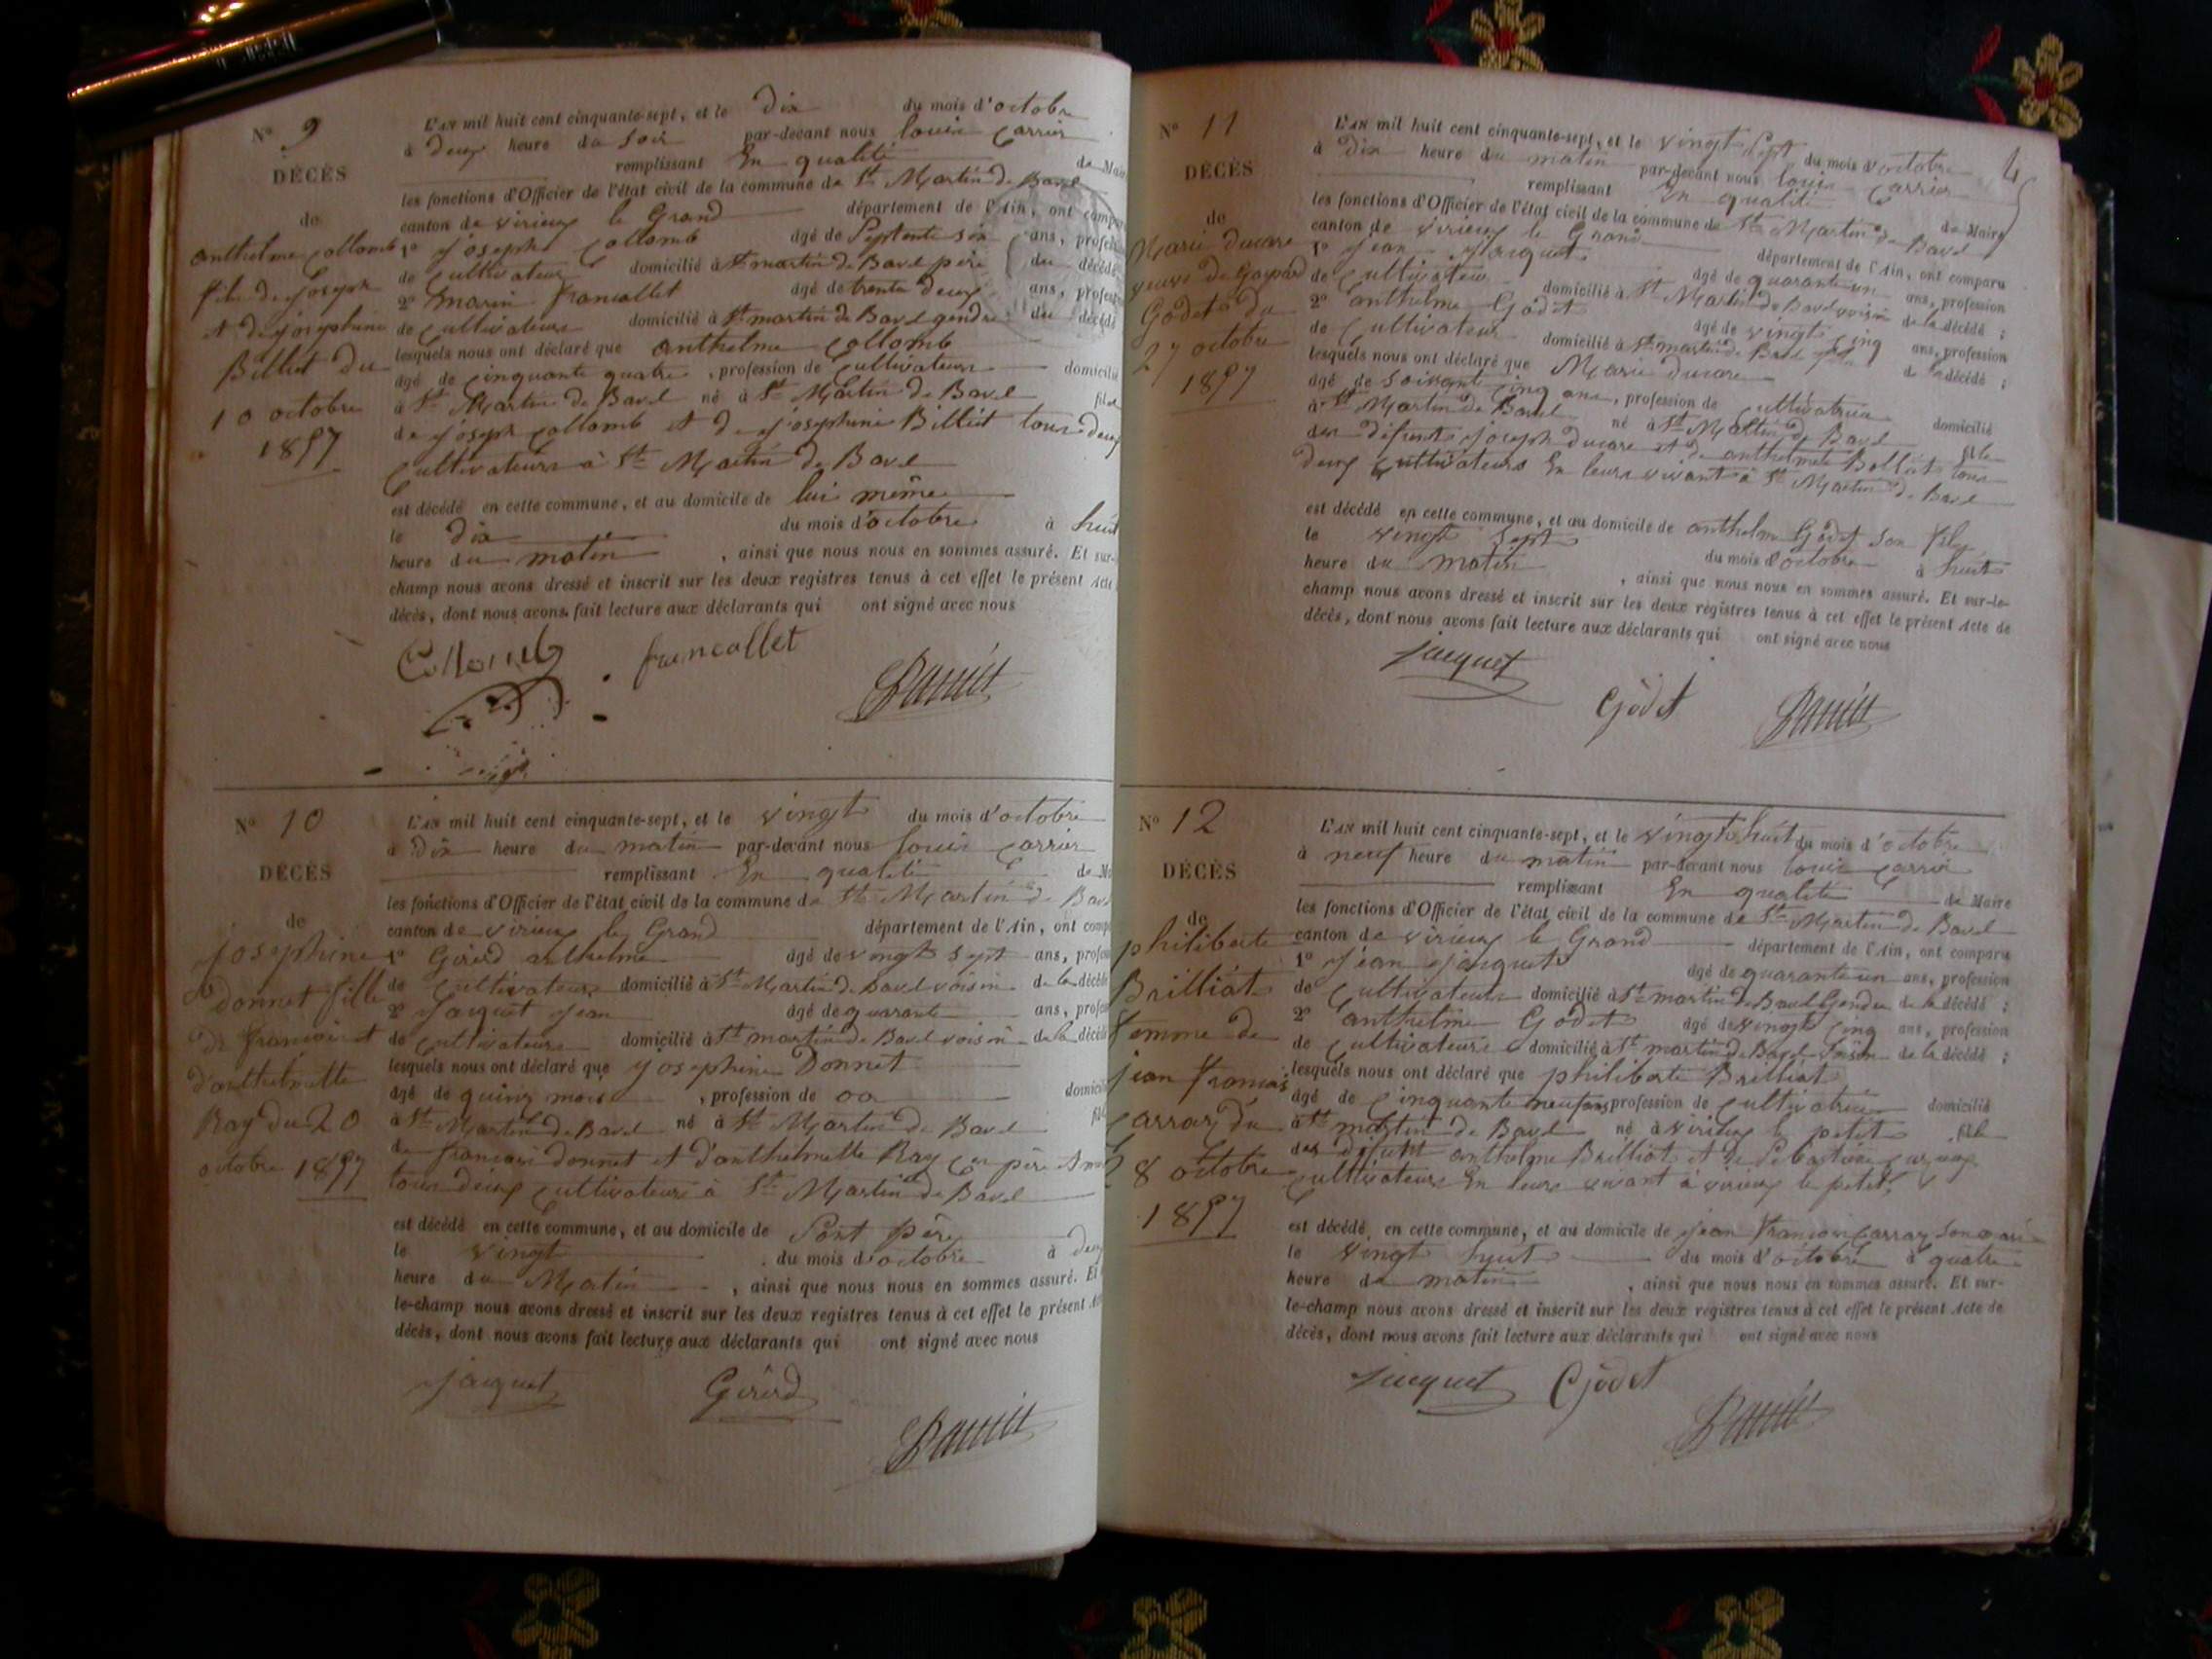 N° 9
DÉCÈS
de
anthelme Collomb
fils de Joseph
et de josephine
Billiet du
10 octobre
1857
L'AN mil huit cent cinquante-sept, et le dix du mois d'octobre
à deux heure du soir par-devant nous louis Carrier
remplissant En qualité de Mai
les fonctions d'Officier de l'état civil de la commune de St Martin de Bavel
canton de virieux le Grand département de l'Ain, ont compa
1° Joseph Collomb âgé de Septente six ans, profes
de Cultivateur domicilié à St martin de Bavel père du décédé
2° marin francallet âgé de trente deux ans, profes
de Cultivateur domicilié à St martin de Bavel gendre du décédé
lesquels nous ont déclaré que anthelme Collomb
âgé de Cinquante quatre, profession de Cultivateur domicilié
à St Martin de Bavel né à St Martin de Bavel fils
de joseph Collomb et de josephine Billiet tous deux
Cultivateurs à St Martin de Bavel
est décédé en cette commune, et au domicile de lui même
le dix du mois d'octobre à huit
heure du matin, ainsi que nous nous en sommes assuré. Et sur-
champ nous avons dressé et inscrit sur les deux registres tenus à cet effet le présent Acte
décès, dont nous avons fait lecture aux déclarants qui ont signé avec nous
Collomb francallet
N° 10
DÉCÈS
de
josephine
donnet fille
de francois et
d'anthelmette
Ray du 20
octobre 1857
L'AN mil huit cent cinquante-sept, et le vingt du mois d'octobre
à dix heure du matin par-devant nous louis Carrier
remplissant En qualité de Ma
les fonctions d'Officier de l'état civil de la commune de St Martin de Bavel
canton de virieux le Grand département de l'Ain, ont comp
1° Girerd anthelme âgé de vingt sept ans, profes
de Cultivateur domicilié à St Martin de bavel voisin de la décédé
2° Jacquet Jean âgé de quarante ans, profes
de Cultivateur domicilié à St martin de Bavel voisin de la décédé
lesquels nous ont déclaré que Josephine Donnet
âgé de quinz mois, profession de oo domicilié
à St Martin de Bavel né à St Martin de Bavel fil
de francois donnet et d'anthelmette Ray Ces père et m
tous deux Cultivateur à St Martin de Bavel
est décédé en cette commune, et au domicile de Sont père
le vingt du mois d'octobre à deux
heure du Matin, ainsi que nous nous en sommes assuré. Et
le-champ nous avons dressé et inscrit sur les deux registres tenus à cet effet le présent Acte
décès, dont nous avons fait lecture aux déclarants qui ont signé avec nous
jacquet Girerd
N° 11
DÉCÈS
de
Marie ducare
veuve de Gaspard
Godet du
27 octobre
1857
L'AN mil huit cent cinquante-sept, et le vingt Sept du mois d'octobre
à dix heure du matin par-devant nous louis Carrier
remplissant En qualité de Maire
les fonctions d'Officier de l'état civil de la commune de St Martin de Bavel
canton de virieux le Grand département de l'Ain, ont comparu
1° Jean Jacquet âgé de quarante un ans, profession
de Cultivateur domicilié à St Martin de Bavel voisin de la décédé;
2° anthelme Godet âgé de vingt cinq ans, profession
de Cultivateur domicilié à St martin de Bavel fils de la décédé;
lesquels nous ont déclaré que Marie ducare
âgé de soixante Cinq ans, profession de Cultivatrice domicilié
à St Martin de Bavel né à St Martin de Bavel fille
des défunts joseph ducare et de anthelmete Bolliet tous
deux Cultivateurs En leurs vivant à St Martin de Bavel
est décédé en cette commune, et au domicile de anthelme Godet son fils
le vingt Sept du mois d'octobre à huit
heure du matin, ainsi que nous nous en sommes assuré. Et sur-le-
champ nous avons dressé et inscrit sur les deux registres tenus à cet effet le présent Acte de
décès, dont nous avons fait lecture aux déclarants qui ont signé avec nous
jacquet
Godet
N° 12
DÉCÈS
de
philiberte
Brilliat
femme de
jean francois
Carraz du
28 octobre
1857
L'AN mil huit cent cinquante-sept, et le vingt huit du mois d'octobre
à neuf heure du matin par-devant nous louis Carrier
remplissant En qualité de Maire
les fonctions d'Officier de l'état civil de la commune de St Martin de Bavel
canton de virieux le Grand département de l'Ain, ont comparu
1° Jean Jacquet âgé de quarante un ans, profession
de Cultivateur domicilié à St martin de Bavel Gendre de la décédé;
2° anthelme Godet âgé de vingt Cinq ans, profession
de Cultivateur domicilié à St martin de Bavel voisin de la décédé;
lesquels nous ont déclaré que philiberte Brilliat
âgé de Cinquante neuf ans profession de Cultivatrice domicilié
à St martin de Bavel né à virieux le petit, fille
des défunt anthelme Brilliat et de Sebastiane
Cultivateurs En leurs vivant à virieux le petit
est décédé en cette commune, et au domicile de jean francois Carraz son mari
le vingt huit du mois d'octobre à quatre
heure du matin, ainsi que nous nous en sommes assuré. Et sur-
le-champ nous avons dressé et inscrit sur les deux registres tenus à cet effet le présent Acte de
décès, dont nous avons fait lecture aux déclarants qui ont signé avec nous
jacquet Godet